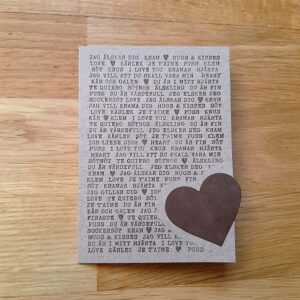 JAG ÄLSKAR DIG KRAM ♥ HUGS & KISSES
LOVE ♥ KÄRLEK JE T'AIME PUSS KLEM
SÖT KNUS I LOVE YOU KRAMAR HJÄRTA
JAG VILL ATT DU SKALL VARA MIN HEART
KÄR OCH GALEN ♥ DU ÄR I MITT HJÄRTA
TE QUIERO SÖTNOS ÄLSKLING DU ÄR FIN
PUSS DU ÄR VÄRDEFULL JEG ELSKER DEG
SOCKERSÖT JAG ÄLSKAR DIG ♥ KRAM
LOVE KÄRLEK JE T'AIME ♥ PUSS KLEM
SÖT ♥ KNUS I LOVE YOU KRAMAR
TE QUIERO SÖTNOS ÄLSKLING DU ÄR FIN
DU ÄR VÄRDEFULL JEG ELSKER DEG KRAM
LOVE ♥ KÄRLEK JE T'AIME PUSS KLEM
ICH LIEBE DICH ♥ HEART DU ÄR FIN SÖT
PUSS I LOVE YOU KNUS KRAMAR HJÄRTA
HEART JAG VILL ATT DU SKALL VARA MIN
SÖTNOS TE QUIERO SÖTNOS ♥ ÄLSKLING
PUSS DU ÄR VÄRDEFULL JEG ELSKER
SÖT ♥ JAG ÄLSKAR DIG HUGS &
KLEM LOVE JE T'AIME PUSS
SÖT KRAMAR HJÄRTA
JAG GILLAR DIG ♥
JE T'AIME DU ÄR FIN
KÄR OCH GALEN JAG
FINASTE ♥ TE QUIERO
PUSS DU ÄR VÄRDEFULL
SOCKERSÖT JAG ÄLSKAR
HUGS & KISSES JAG VILL ATT DU SKALL VARA MIN
DU ÄR I MITT HJÄRTA I LOVE YOU
LOVE KÄRLEK JE T'AIME ♥ PUSS